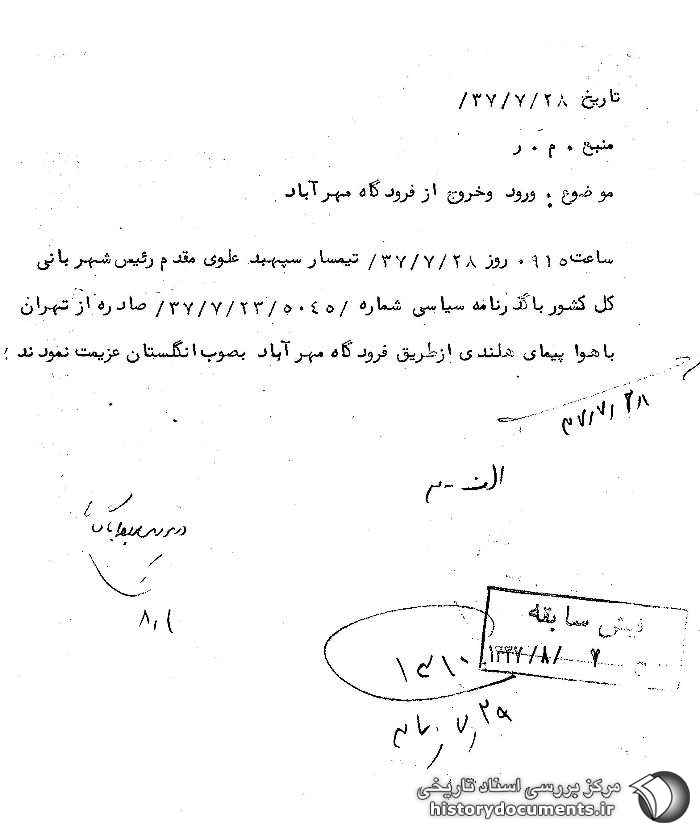 تاریخ ۳۷/۷/۲۸/
منبع . م . ر
موضوع : ورود وخروج از فرودگاه مهرآباد
ساعت ۰۹۱۵ روز ۳۷/۷/۲۸/ تیمسار سپهبد علوی مقدم رئیس شهربانی
کل کشور با گذرنامه سیاسی شماره /۵۰۴۵/۳۷/۷/۲۳/ صادره از تهران
با هوا پیمای هلندی ازطریق فرودگاه مهرآباد بصوب انگلستان عزیمت نمودند
۳۷/۷/۲۸
الف - م
۸٫۱
فیش سابقه
۱۳۳۷/۸/ ۷
۱۳۱۰
۳۷٫۷٫۲۹
مرکز بررسی اسناد تاریخی
historydocuments.ir